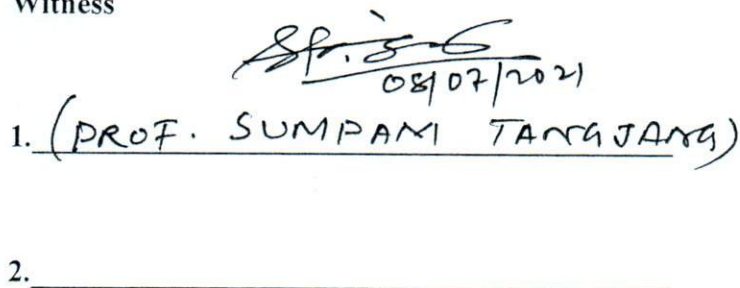 Witness
08/07/2021
1. (PROF. SUMPAM TANGJANG)
2.